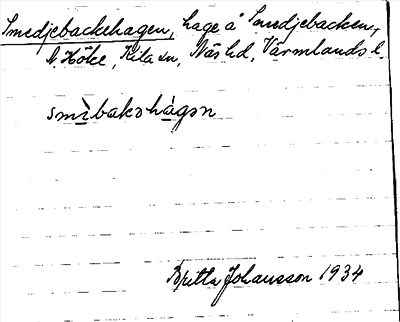 Smedjebackehagen, hage å Smedjebacken,
N. Höke, Kila sn, Näs hd, Värmlands l.
smìbakɘhàgɘn
Britta Johansson 1934